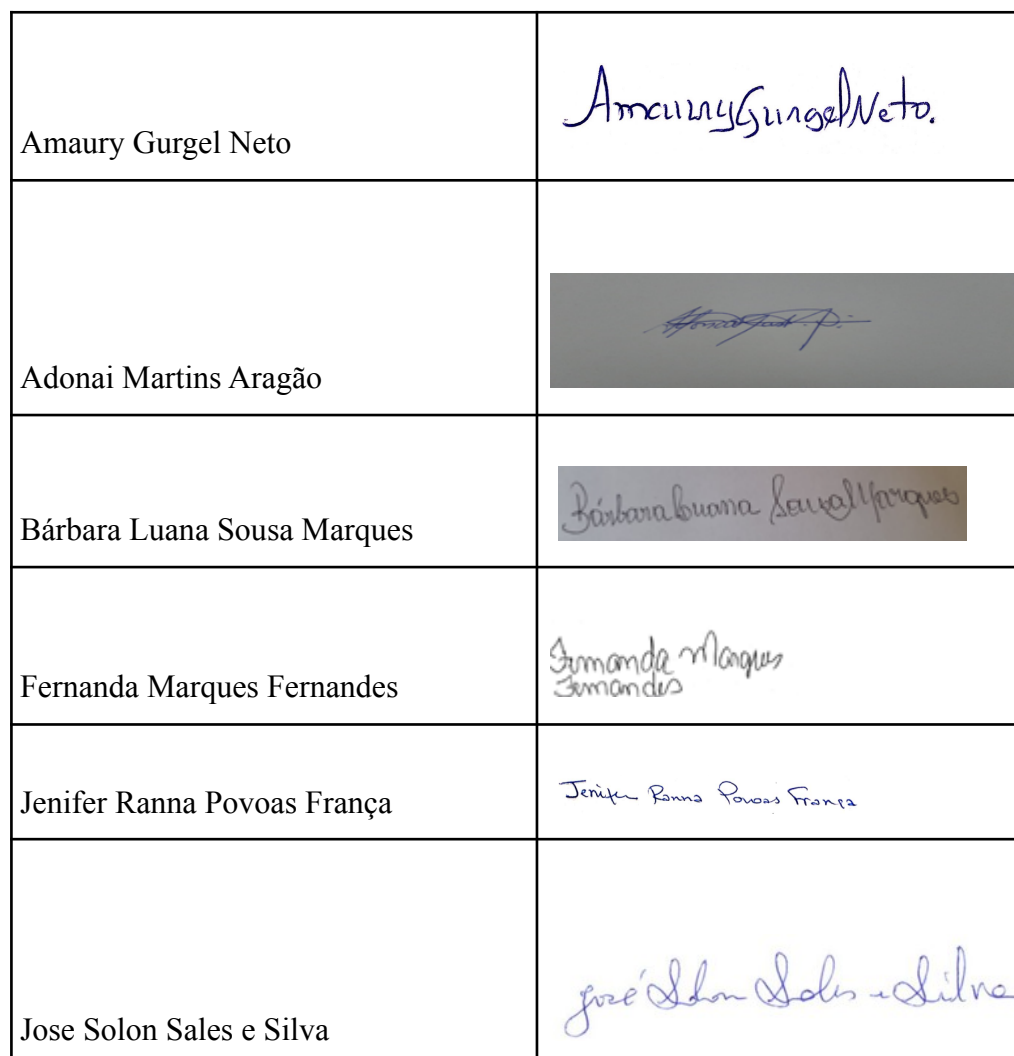 Amaury Gurgel Neto
Amaury Gurgel Neto.
Adonai Martins Aragão
Bárbara Luana Sousa Marques
Bárbara Luana Sousa Marques
Fernanda Marques Fernandes
Fernanda Marques
Fernandes
Jenifer Ranna Povoas França
Jenifer Ranna Povoas França
Jose Solon Sales e Silva
José Solon Sales e Silva